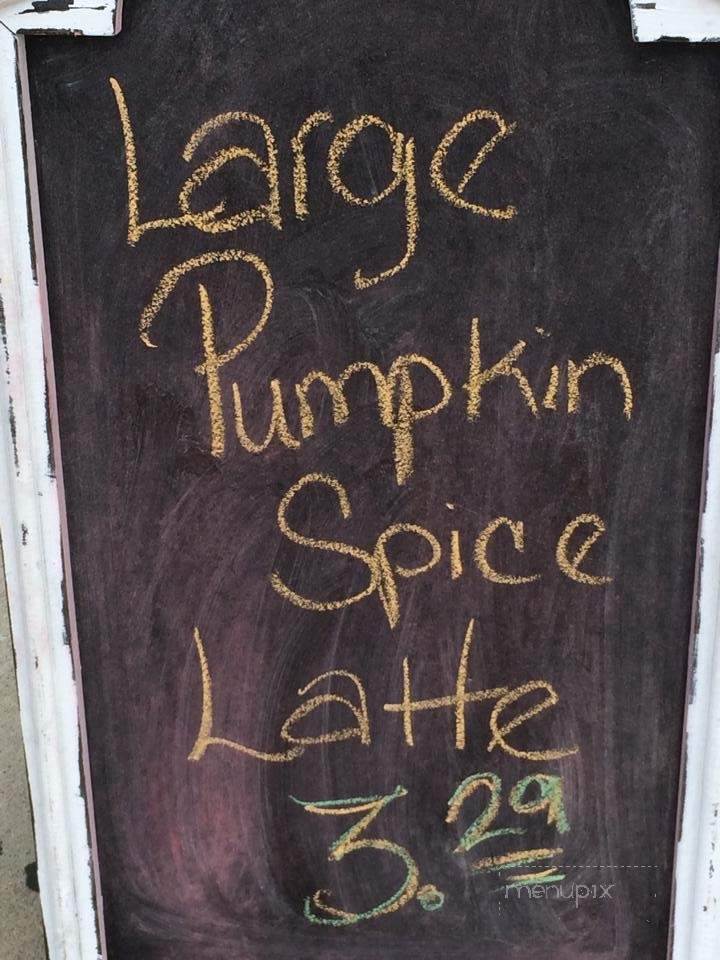 Large
Pumpkin
Spice
Latte
3.29
menupix